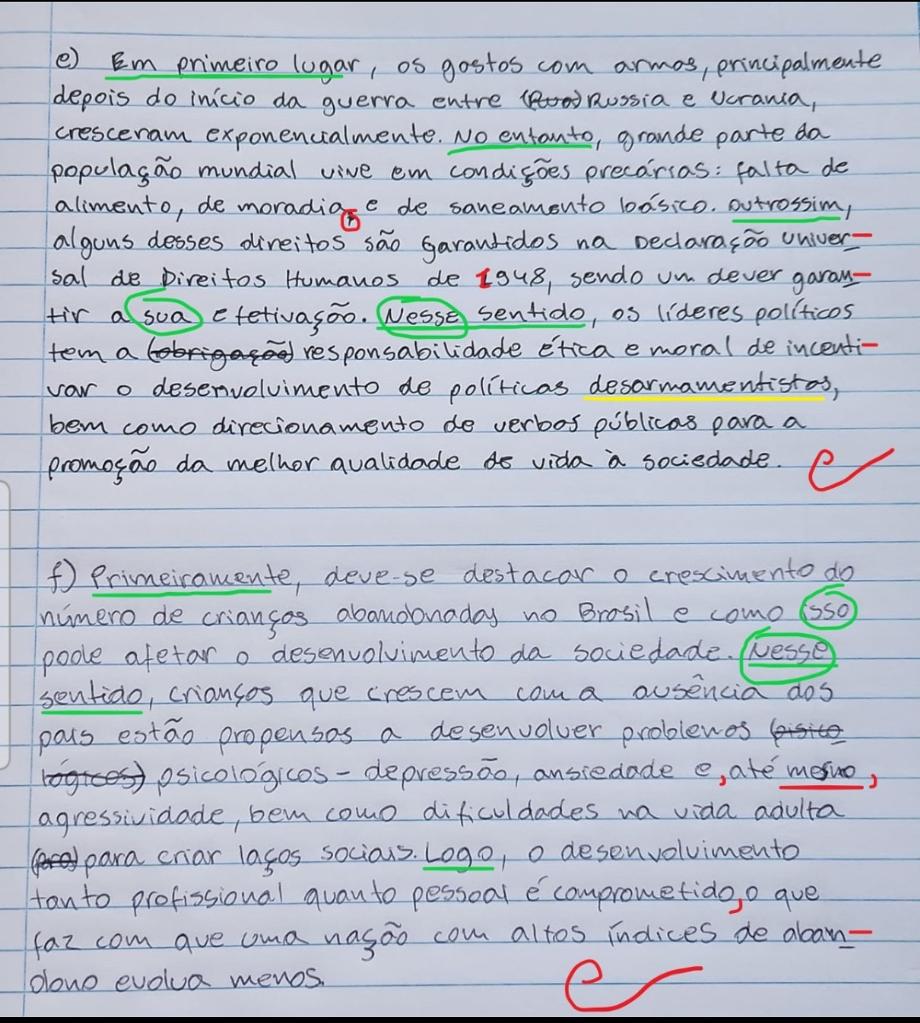 e) Em primeiro lugar, os gastos com armas, principalmente
depois do início da guerra entre (Rus) Russia e Ucrania,
cresceram exponencialmente. No entanto, grande parte da
população mundial vive em condições precárias: falta de
alimento, de moradia, e de saneamento básico. Outrossim,
alguns desses direitos são garantidos na Declaração Univer-
sal de Direitos Humanos de 1948, sendo um dever garan-
tir a sua efetivação. Nesse sentido, os líderes políticos
tem a (obrigação) responsabilidade ética e moral de incenti-
var o desenvolvimento de políticas desarmamentistas,
bem como direcionamento de verbas públicas para a
promoção da melhor qualidade de vida à sociedade.
f) Primeiramente, deve-se destacar o crescimento do
número de crianças abandonadas no Brasil e como isso
pode afetar o desenvolvimento da sociedade. Nesse
sentido, crianças que crescem com a ausência dos
pais estão propensas a desenvolver problemas (pisico
lógicos) psicológicos - depressão, ansiedade e, até mesmo,
agressividade, bem como dificuldades na vida adulta
(pra) para criar laços sociais. Logo, o desenvolvimento
tanto profissional quanto pessoal é comprometido, o que
faz com que uma nação com altos índices de aban-
dono evolua menos.